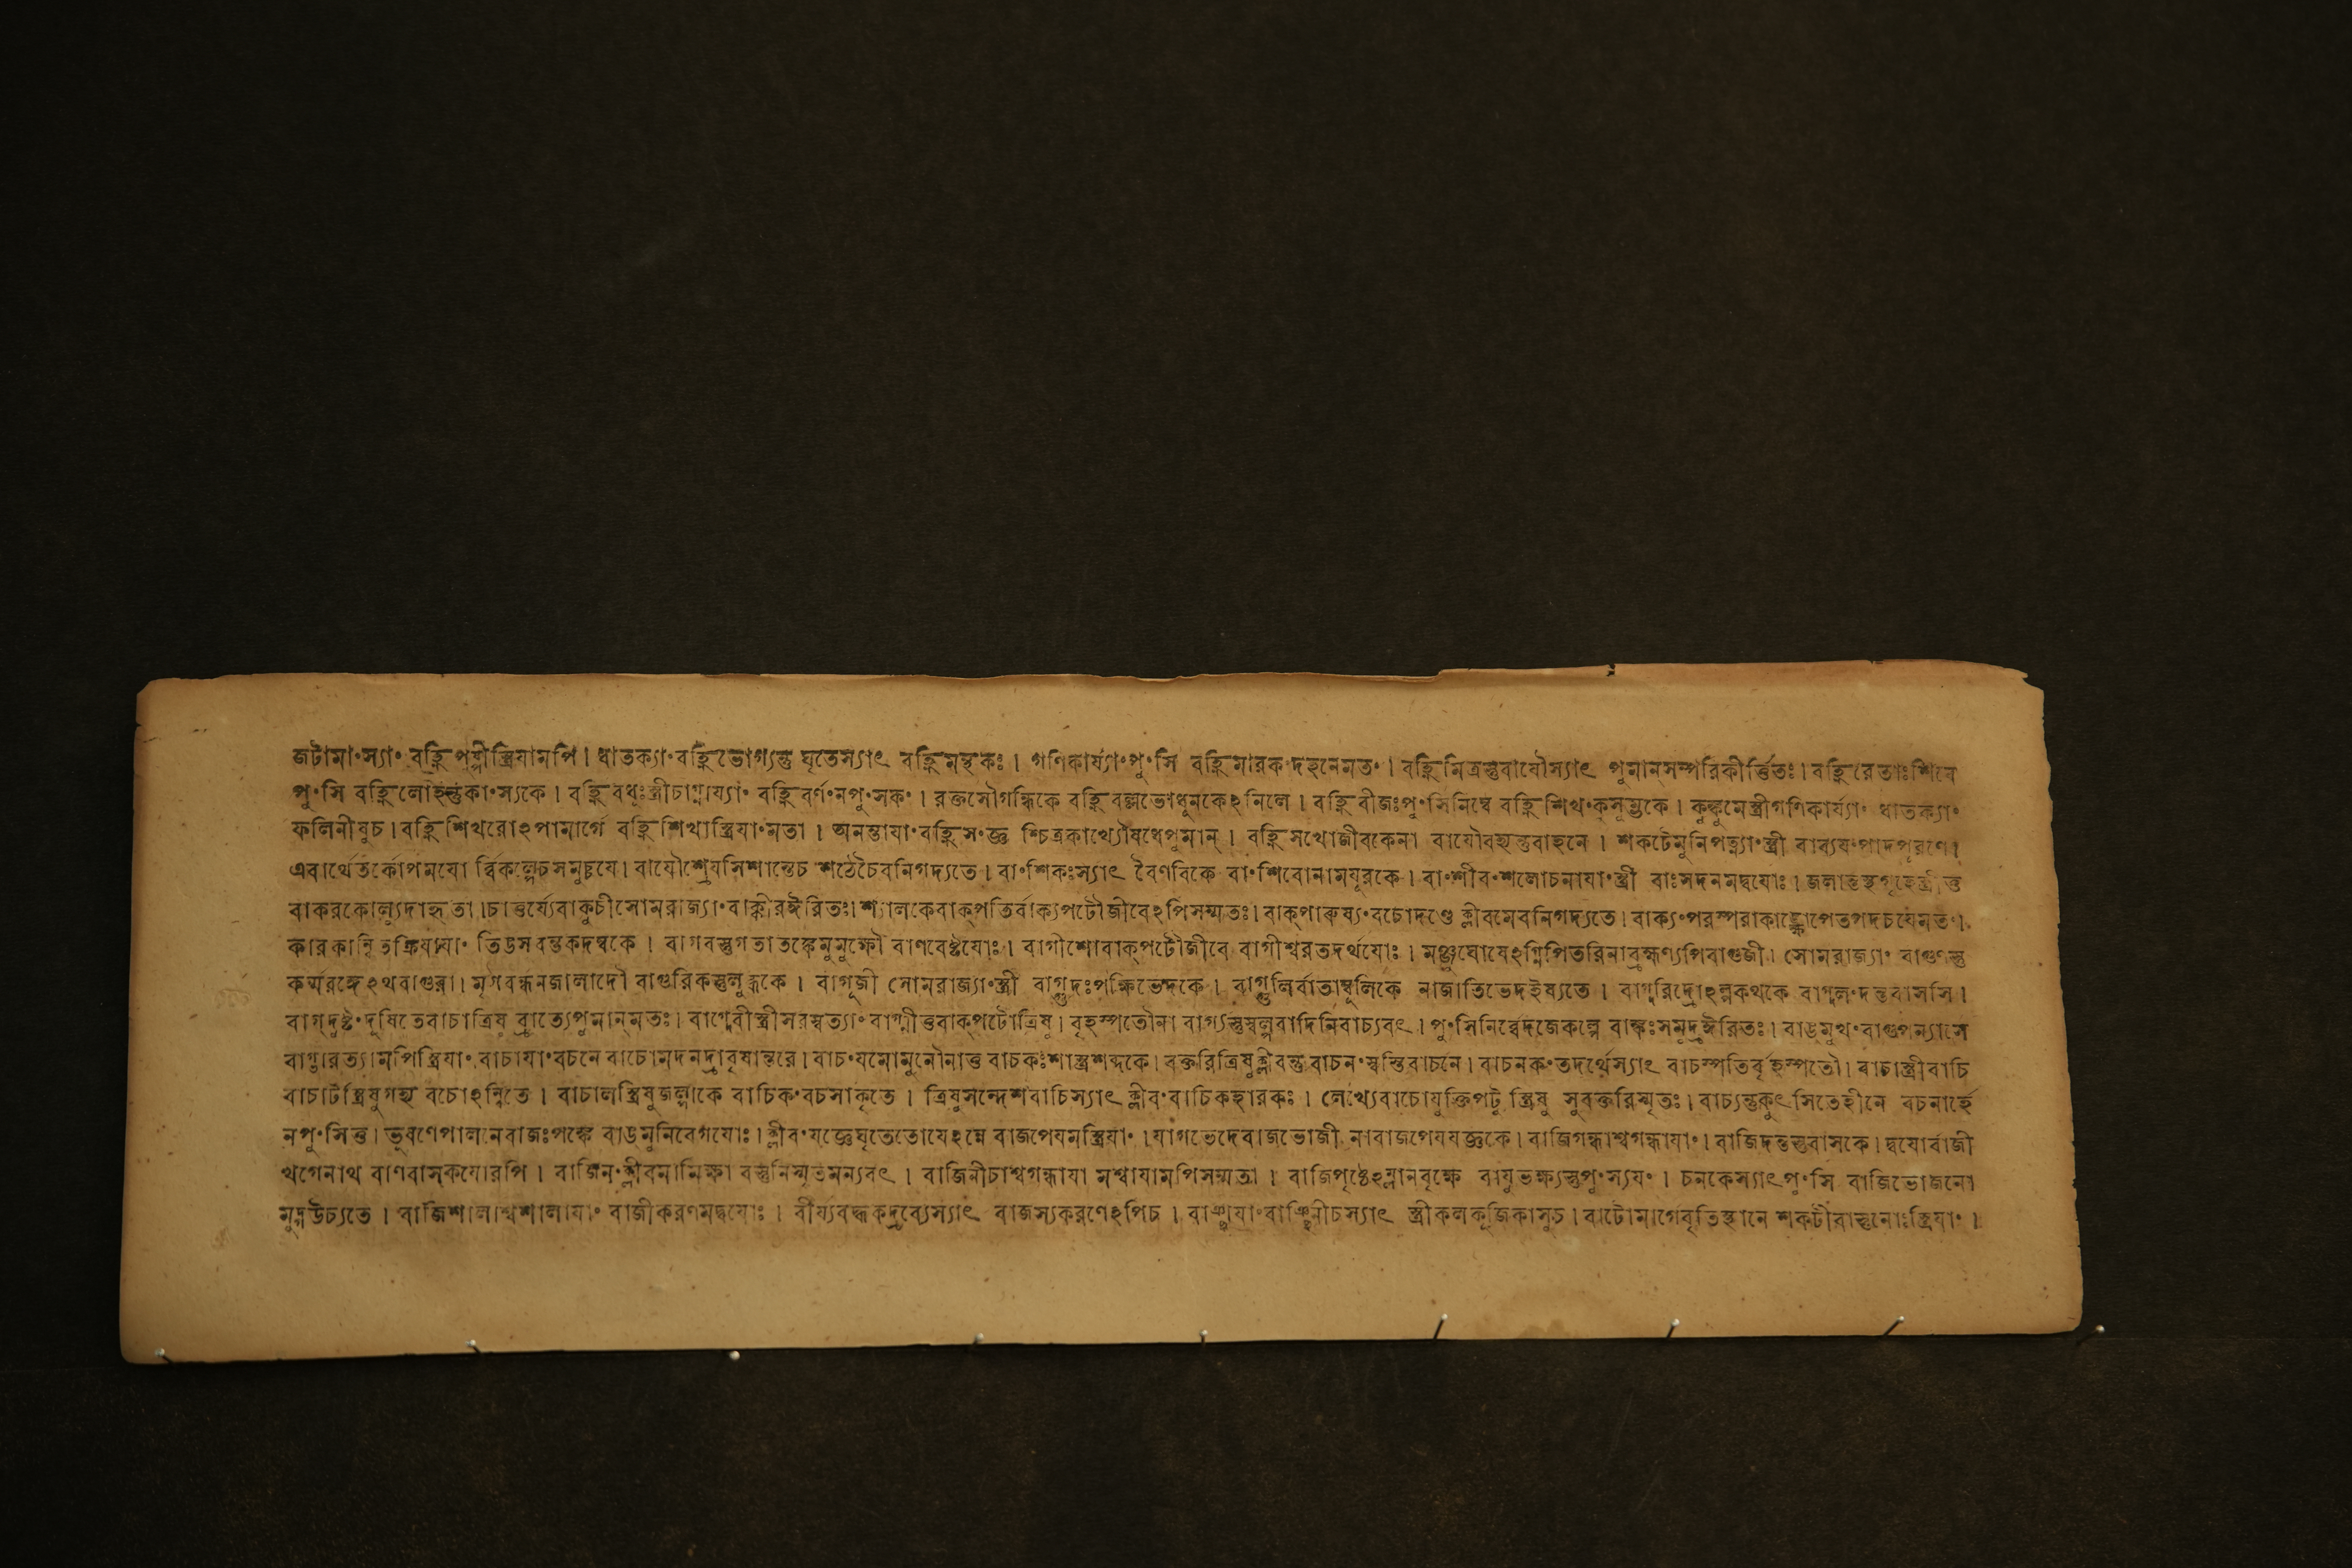 জটামাংস্যাং বহ্নিপত্নীস্ত্রিযামপি। ধাতক্যাংবহ্নিভোগ্যন্তু ঘৃতেস্যাৎ বহ্নিমন্থকঃ। গণিকার্য্যাংপুংসি বহ্নিমারকংদহনেমতং। বহ্নিমিত্রস্তুবাযৌস্যাৎ পুমানসম্পরিকীর্ত্তিতঃ। বহ্নিরেতাঃশিবে
পুংসি বহ্নিলোহন্তুকাংস্যকে। বহ্নিবধূঃস্ত্রীচাগ্নায্যাং বহ্নিবর্ণংনপুংসকং। রক্তসৌগন্ধিকে বহ্নিবল্লভোধুনকেঽনিলে। বহ্নিবীজঃপুংসিনিম্বে বহ্নিশিখংকুসুম্ভকে। কুঙ্কুমেস্ত্রীগণিকার্য্যাং ধাতক্যাং
ফলিনীষুচ। বহ্নিশিখরোঽপামার্গে বহ্নিশিখাস্ত্রিযাংমতা। অনন্তাযাংবহ্নিসংজ্ঞ শ্চিত্রকাখ্যৌষধেপুমান্। বহ্নিসখোজীবকেনা বাযৌবহ্যন্তুবাহনে। শকটেমুনিপত্ন্যাংস্ত্রী বাব্যযংপাদপূরণে।
এবার্থেতর্কোপমযো র্ব্বিকল্পেচসমুচ্চযে। বাযৌশ্রেযসিশান্তেচ শঠেচৈবনিগদ্যতে। বাংশিকঃস্যাৎ বৈণবিকে বাংশিবোনামযূরকে। বাংশীবংশলোচনাযাংস্ত্রী বাঃসদনমদ্বযোঃ। জলান্তস্থগৃহেস্ত্রীত্ত
বাকরকোল্যুদাহৃতা। চাত্তর্য্যেবাকুচীসোমরাজ্যাংবাক্কীরঈরিতঃ। শ্যালকেবাক্পতির্বাক্যপটৌজীবেঽপিসম্মতঃ। বাক্পারুষ্যংবচোদণ্ডে ক্লীবমেবনিগদ্যতে। বাক্যংপরস্পরাকাঙ্ক্ষোপেতপদচযেমতং।
কারকান্বিতক্রিযাযাং তিঙসবন্তকদম্বকে। বাগবস্তুগতাতঙ্কেমুমুক্ষৌ বাণবেষ্টযোঃ। বাগীশোবাক্পটৌজীবে বাগীশ্বরতদর্থযোঃ। মঞ্জুঘোষেঽগ্নিপিতরিনাব্রহ্মণ্যপিবাগুজী। সোমরাজ্যাং বাগুণন্তু
কর্ম্মরঙ্গেঽথবাগুরা। মৃগবন্ধনজালাদৌ বাগুরিকস্তুলুব্ধকে। বাগূজী সোমরাজ্যাংস্ত্রী বাগ্গুদঃপক্ষিভেদকে। বাগ্গুলির্বাতাম্বুলিকে নাজাতিভেদইষ্যতে। বাগ্দরিদ্রোঽল্পকথকে বাগ্দলংদন্তবাসসি।
বাগ্দুষ্টংদুষিতেবাচাত্রিষু ব্রাত্যেপুমান্মতঃ। বাগ্দেবীস্ত্রীসরস্বত্যাং বাগ্মীত্তবাক্পটৌত্রিষু। বৃহস্পতৌনা বাগ্যন্তুস্বল্পবাদিনিবাচ্যবৎ। পুংসিনির্ব্বেদজেকল্পে বাঙ্কঃসমুদ্রঈরিতঃ। বাঙমুখংবাগুপন্যাসে
বাগ্ভারত্যামপিস্ত্রিযাং বাচাযাংবচনে বাচোমদনদ্রাবৃষান্তরে। বাচংযমোমুনৌনাত্ত বাচকঃশাস্ত্রশব্দকে। বক্তরিত্রিষুক্লীবন্তু বাচনংস্বস্তিবাচনে। বাচনকংতদর্থেস্যাৎ বাচস্পতির্বৃহস্পতৌ। বাচাস্ত্রীবাচি
বাচাটস্ত্রিষুগর্হ্য বচোঽন্বিতে। বাচালস্ত্রিষুজল্পাকে বাচিকংবচসাকৃতে। ত্রিষুসন্দেশবাচিস্যাৎ ক্লীবংবাচিকহারকঃ। লেখ্যেবাচোযুক্তিপটু স্ত্রিষু সুবক্তরিস্মৃতঃ। বাচ্যন্তুকুৎসিতেহীনে বচনার্হে
নপুংসিত্ত। ভুষণেপালনেবাজঃপক্ষে বাঙমুনিবেগযোঃ। ক্লীবংযজ্ঞেঘৃতেতোযেঽন্নে বাজপেযমস্ত্রিযাং। যাগভেদেবাজভোজী নাবাজপেযযজ্ঞকে। বাজিগন্ধাশ্বগন্ধাযাং। বাজিদন্তস্তুবাসকে। দ্বযোর্বাজী
থগেনাথ বাণবাসকযোরপি। বাজিনংক্লীবমামিক্ষা বস্তুনিস্মৃতমন্যবৎ। বাজিনীচাশ্বগন্ধাযা মশ্বাযামপিসম্মতা। বাজিপৃষ্ঠেঽম্লানবৃক্ষে বাযুভক্ষ্যন্তুপুংস্যযং। চনকেস্যাৎপুংসি বাজিভোজনো
মুদ্গউচ্যতে। বাজিশালাশ্বশালাযাং বাজীকরণমদ্বযোঃ। বীর্য্যবদ্ধকদ্রব্যেস্যাৎ বাজস্যকরণেঽপিচ। স্ত্রীকলকূজিকাসুচ। বাটোমার্গেবৃতিস্থানে শকটীবাস্তুনোঃস্ত্রিযাং।